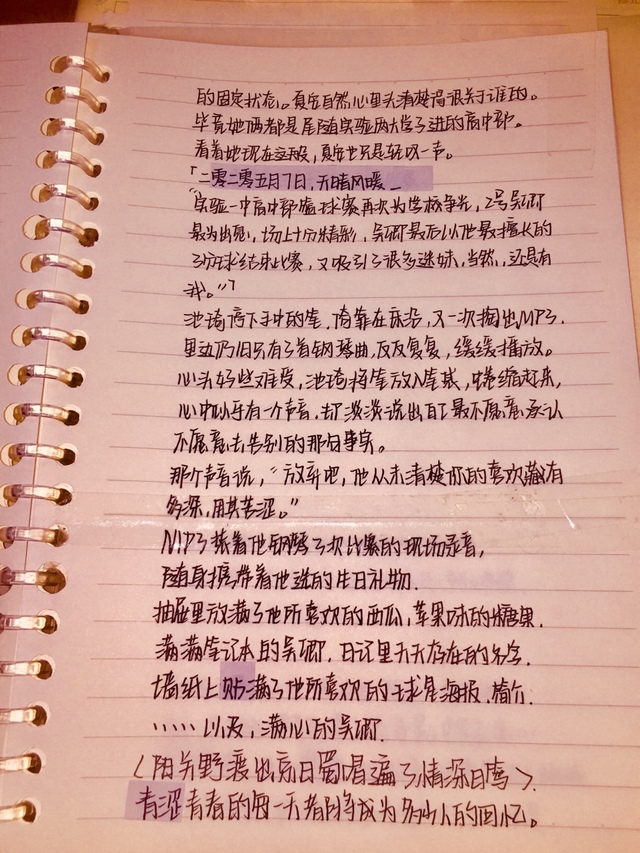 的固定状态。夏年自然心里头清楚得很关于谁的。
毕竟她俩都是尾随实验两大学子进的高中部。
看着她现在这般，夏年也只是轻叹一声。
「二零二零五月7日，天晴风暖_
“实验一中高中部篮球赛再次为学校争光，2号吴卿
最为出彩，场上十分精彩，吴卿最后以他最擅长的
3分球结束比赛，又吸引了很多迷妹，当然，还有
我。”」
池琦停下手中的笔，倚靠在床沿，又一次掏出MP3.
里边仍旧只有了首钢琴曲，反反复复，缓缓播放。
心头好些难受，池琦将笔放入笔袋，蜷缩起来，
心中似乎有一个声音，却淡淡说出自己最不愿意承认
不愿意去告别的那句事实。
那个声音说，“放弃吧，他从未清楚你的喜欢藏有
多深，用其苦涩。”
MP3 装着他钢琴3次比赛的现场录音，
随身携带着他送的生日礼物.
抽屉里放满了他所喜欢的西瓜，苹果味的糖果.
满满笔记本的吴卿，日记里天天存在的名字.
墙纸上贴满了他所喜欢的球星海报，简介.
······以及，满心的吴卿.
唱遍了情深
青涩青春的每一天都将成为多少人的回忆。